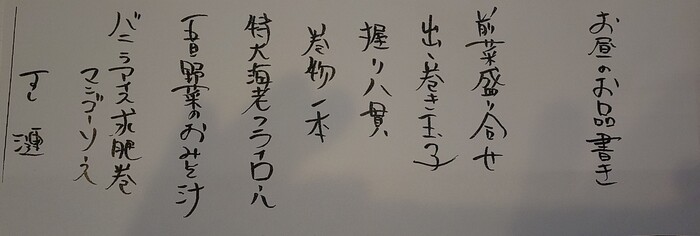 お昼のお品書き
前菜盛り合せ
出し巻き玉子
握り八貫
巻物一本
特大海老フライロール
五目野菜のおみそ汁
バニラアイス求肥巻
マンゴーソース
すし